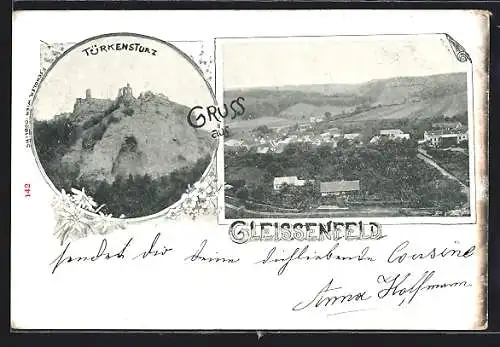 TÜRKENSTURZ
GRUSS
aus
GLEISSENFELD.
142
sendet dir deine dichliebende Cousine
Anna Hoffmann